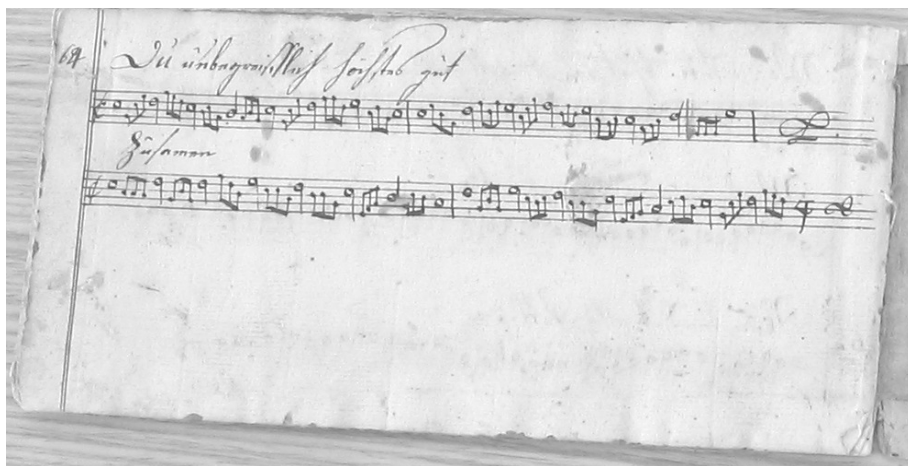 64 Du unbegreifflich höchstes gut
Zusamen